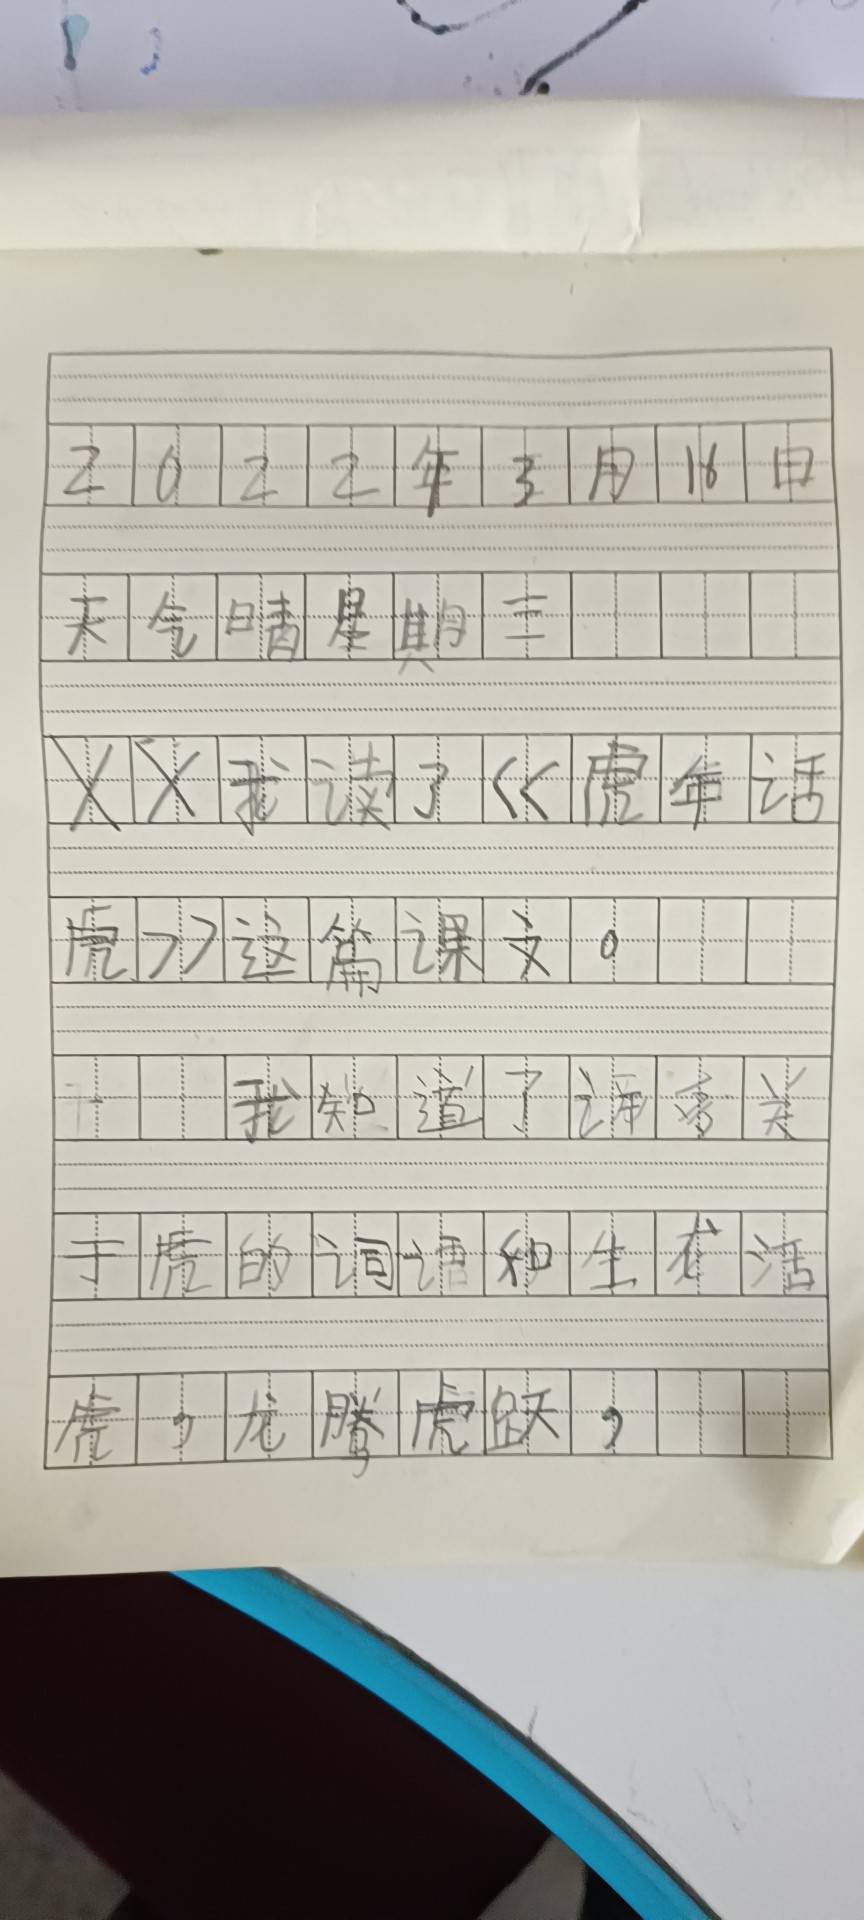 2022年3月16日
天气晴星期三
XX我读了《虎年话
虎》这篇课文。
我知道了许多关
于虎的词语和生龙活
虎，龙腾虎跃，